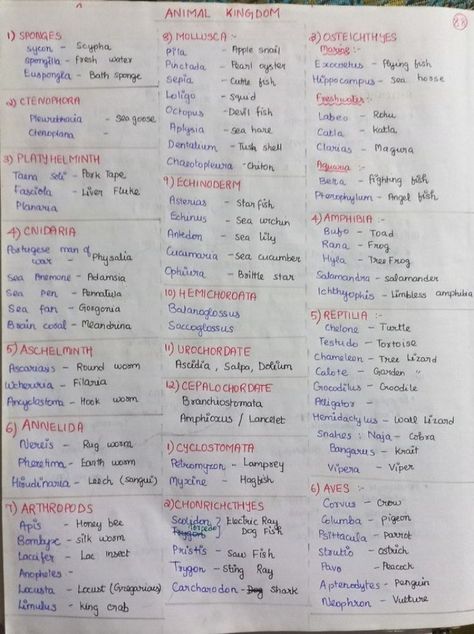 ANIMAL KINGDOM
1) SPONGES
Sycon - Scypha
Spongilla - Fresh water
Euspongla - Bath sponge
2) CTENOPHORA
Pleurobracia - Sea goose
Ctenoplana -
3) PLATYHELMINTH
Taena soli - Pork Tape
Fasciola - Liver Fluke
Planaria
4) CNIDARIA
Portugese man of war - Physalia
Sea Anemone - Adamsia
Sea pen - Pennatula
Sea fan - Gorgonia
Brain coral - Meandrina
5) ASCHELMINTH
Ascariasis - Round worm
Wcheruria - Filaria
Ancyclostoma - Hook worm
6) ANNELIDA
Nereis - Rug worm
Pheretima - Earth worm
Hirudinaria - Leech (sangui)
7) ARTHROPODS
Apis - Honey bee
Bombyx - silk worm
Laccifer - Lac insect
Anopheles -
Locusta - Locust (Gregarious)
Limulus - king crab
8) MOLLUSCA :-
Pila - Apple snail
Pinctada - Pearl oyster
Sepia - Cuttle fish
Loligo - Squid
Octopus - Devil fish
Aplysia - Sea hare
Dentalium - Tusk shell
Chaetopleura - Chiton
9) ECHINODERM
Asterias - Star fish
Echinus - Sea urchin
Antedon - Sea lily
Cucumaria - Sea cucumber
Ophiura - Brittle star
10) HEMICHORDATA
Balanoglossus
Saccoglossus
11) UROCHORDATE
Ascidia, Salpa, Dolium
12) CEPALOCHORDATE
Branchiostomata
Amphioxus / Lancelet
1) CYCLOSTOMATA
Petromyzon - Lamprey
Myxine - Hagfish
2) CHONRICHCTHYES
Scolidon Electric Ray
Torpedo Dog Fish
Pristis - Saw Fish
Trygon - Sting Ray
Carcharodon - Dog Shark
3) OSTEICHTHYES
Marine:-
Exocoetus - Flying fish
Hippocampus - Sea horse
Freshwater:-
Labeo - Rohu
Catla - katla
Clarias - Magura
Aquaria :-
Beta - Fighting fish
Pterophylum - Angel fish
4) AMPHIBIA :-
Bufo - Toad
Rana - Frog
Hyla - Tree Frog
Salamandra - salamander
Ichthyophis - Limbless amphibia
5) REPTILIA :-
Chelone - Turtle
Testudo - Tortoise
Chameleon - Tree Lizard
Calote - Garden "
Crocodilus - Crocodile
Alligator -
Hemidactylus - Wall Lizard
Snakes : Naja - Cobra
Bangarus - Krait
Vipera - Viper
6) AVES :-
Corvus - Crow
Columba - pigeon
Psittacula - parrot
Strutio - ostrich
Pavo - Peacock
Aptenodytes - Penguin
Neophron - Vulture